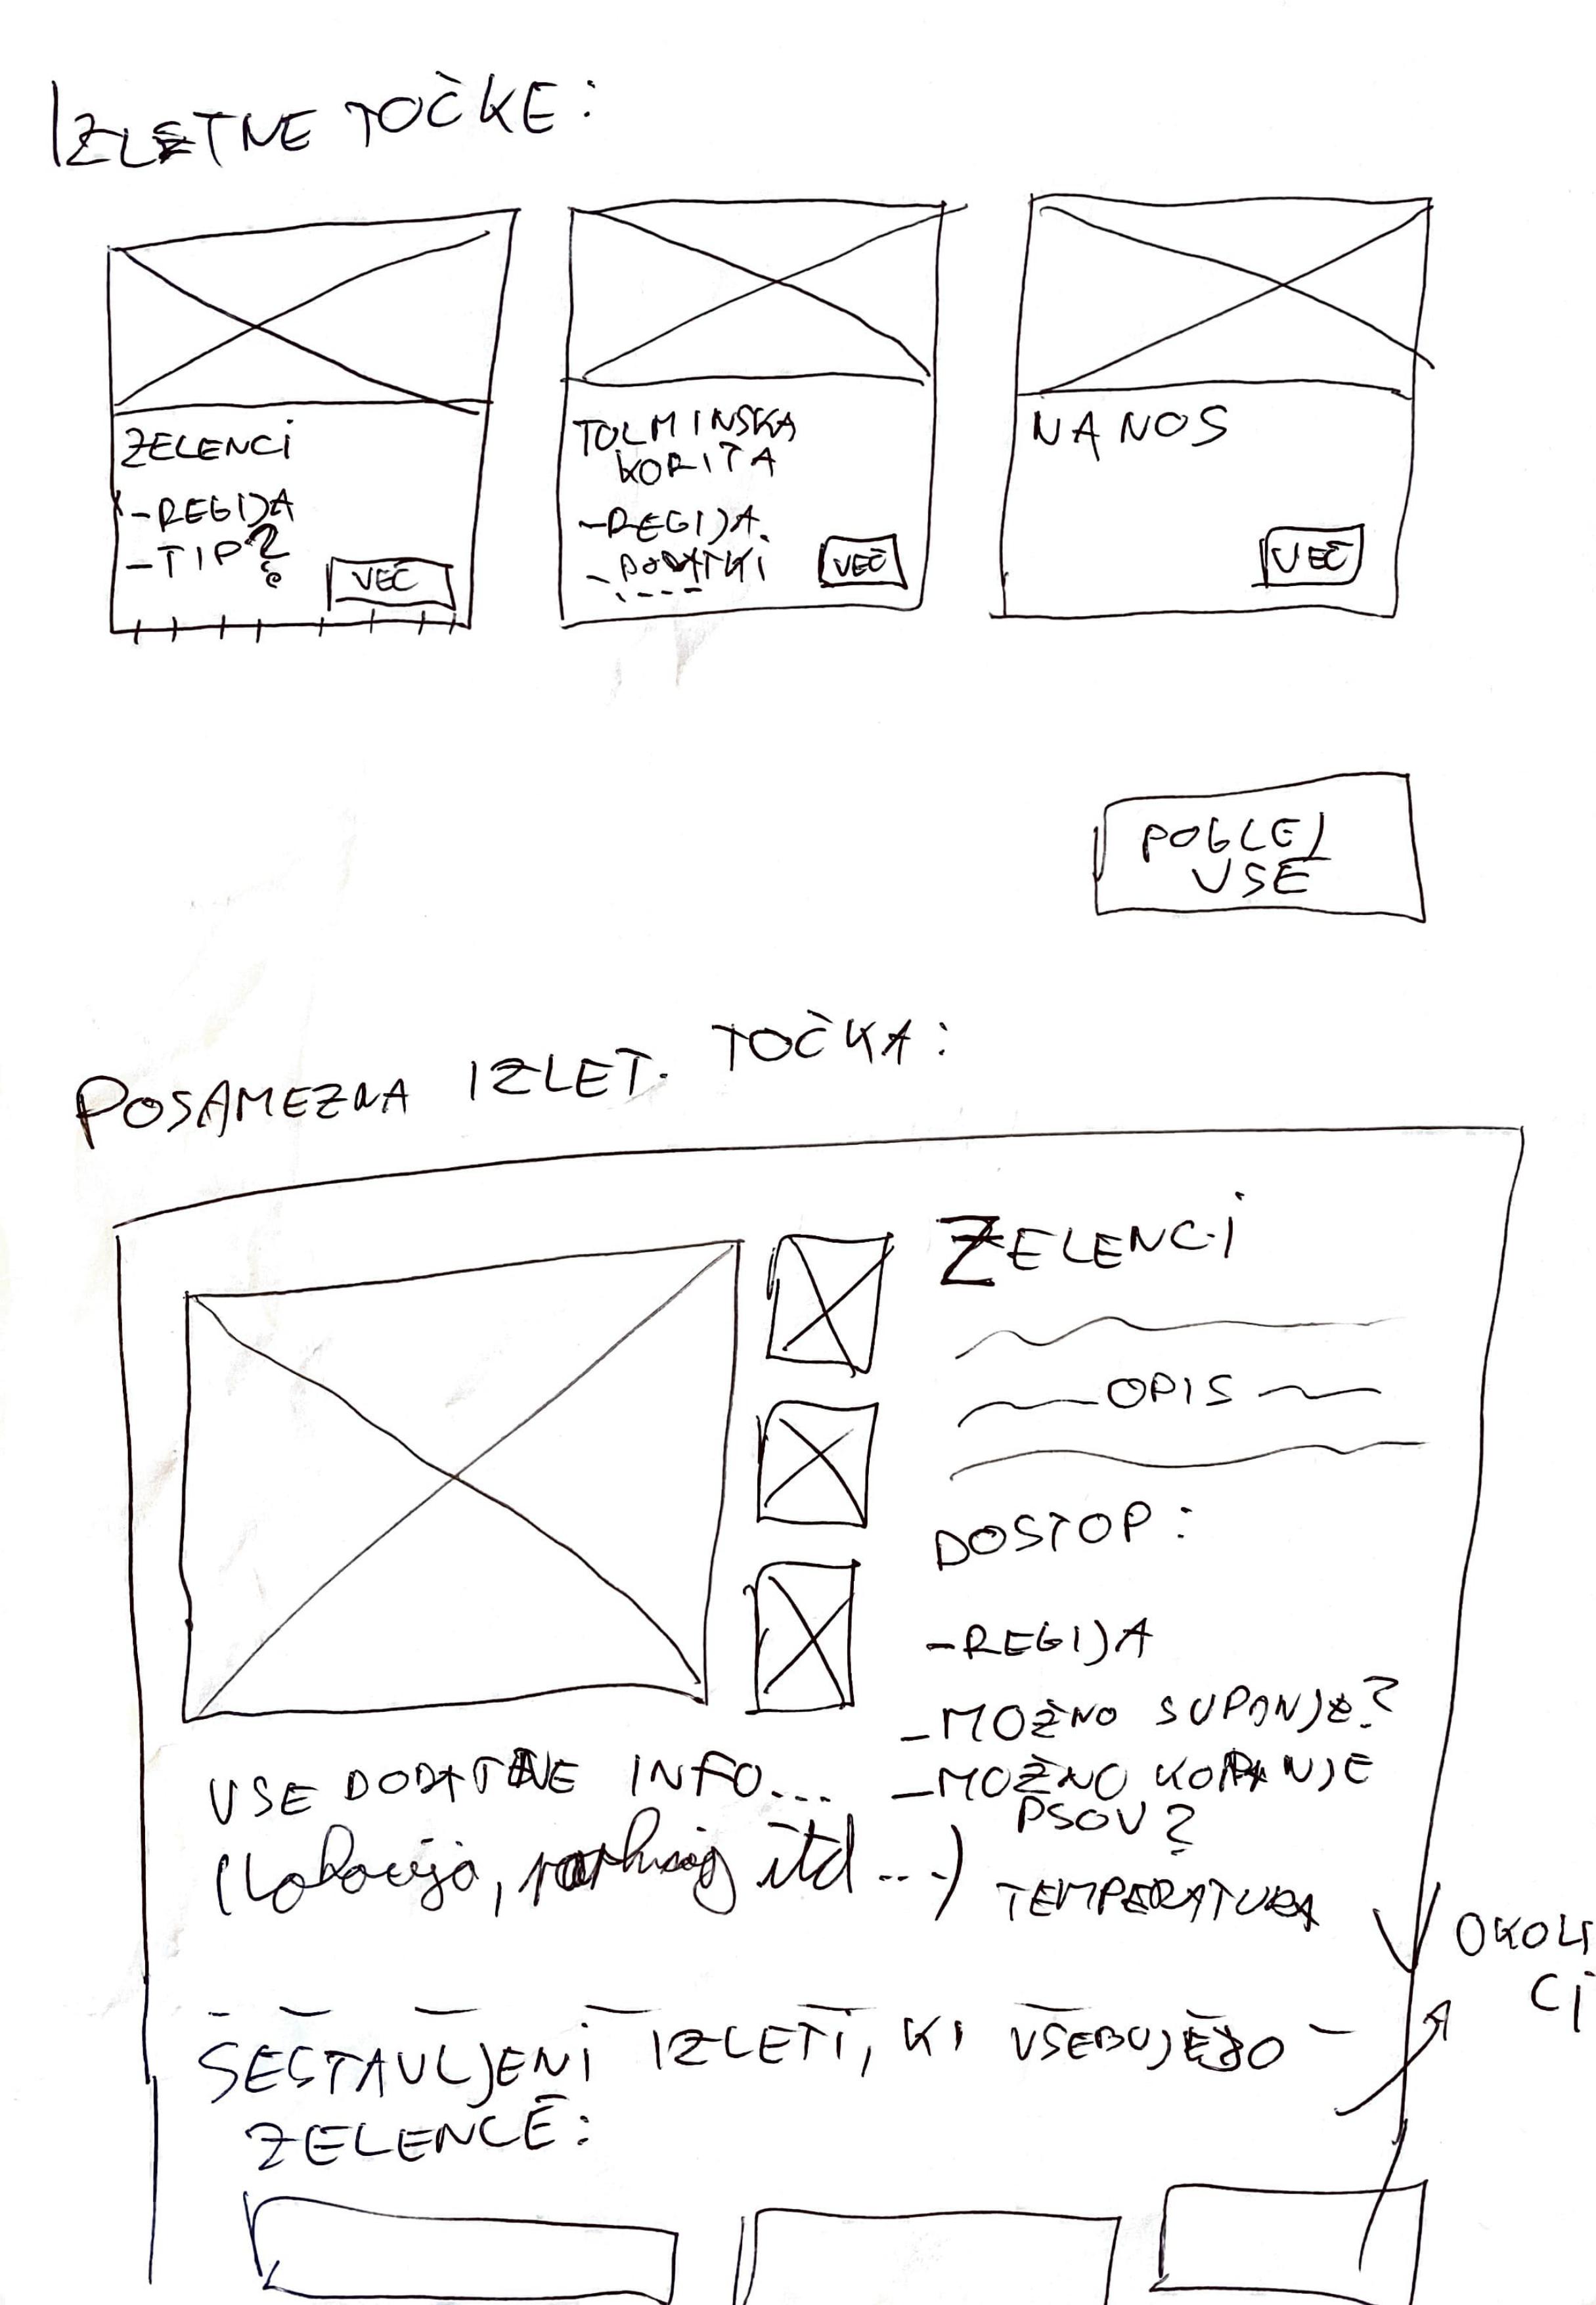 IZLETNE TOČKE:
ZELENCI
-REGIJA
-TIP?
VEČ
TOLMINSKA
KORITA
-REGIJA
-PODATKI
VEČ
NANOS
VEČ
POGLEJ
VSE
POSAMEZNA IZLET. TOČKA:
ZELENCI
OPIS
DOSTOP:
-REGIJA
-MOŽNO SUPANJE?
-MOŽNO KOPANJE
PSOV?
TEMPERATURA
VSE DODATNE INFO...
(lokacija, parking itd...)
V OKOLI
CI
SESTAVLJENI IZLETI, KI VSEBUJEJO
ZELENCE: